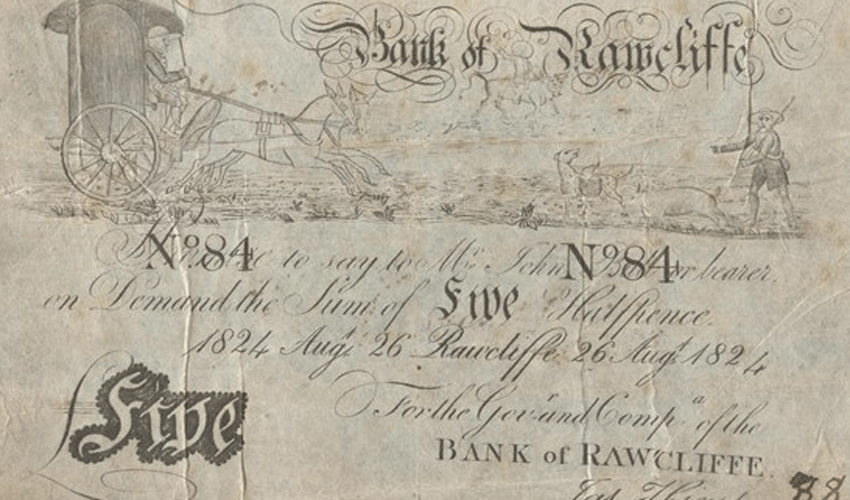 Bank of Rawcliffe
Nº84 to say to Mr John Nº84 or bearer
on Demand the Sum of Five Halfpence.
1824 Augt 26 Rawcliffe 26 Augt 1824
For the Govr and Compa of the
Five
BANK of RAWCLIFFE.